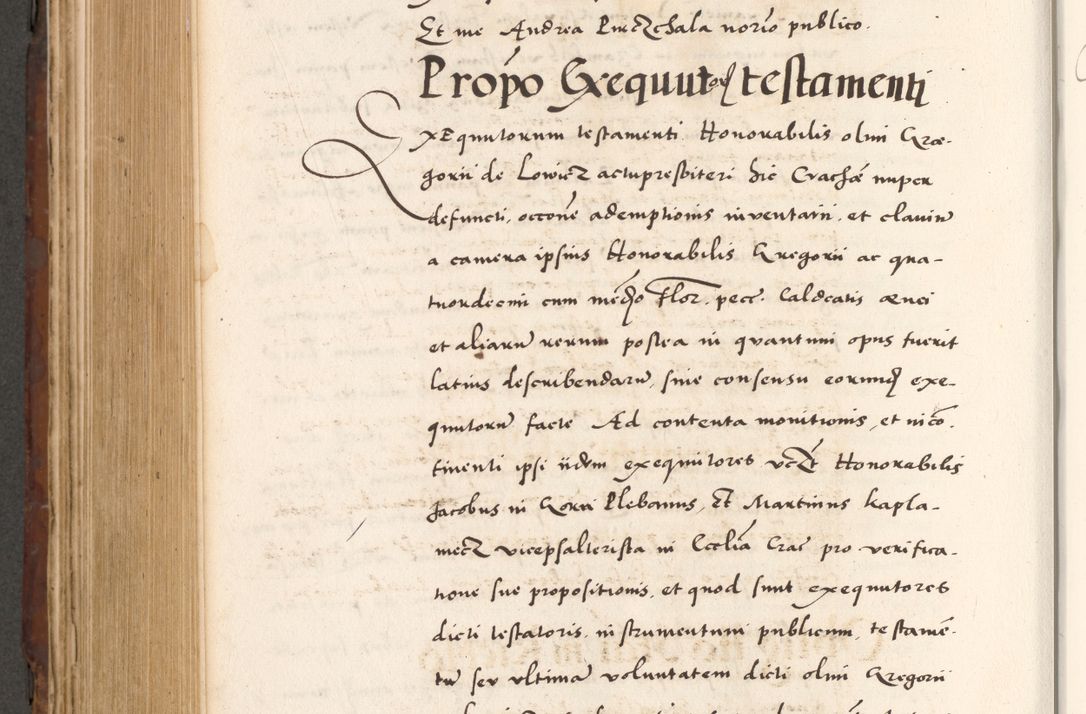 Et me Andrea Purczchala norio publico.
Propo Exequutor testamenti
Exequutorum testamenti Honorabilis olim Gre-
gorii de Lowicz actupresbiteri hic Cracae nuper
defuncti, occone ademptionis inventarii, et clavium
a camera ipsius Honorabilis Gregorii ac qua-
tuordecim cum medio Flor. pecc. Caldeatis aenei
et aliaru rerum postea in quantum opus fuerit
latius describendaru, sine consensu eorumd exe-
quutoru facte Ad contenta monitionis, et nico.
tinenti ipsi iidem exequutores vczt Honorabilis
Jacobus in Plebanus, et Martinus kapla-
mecz vicepsalterista in Ecclia Crac pro verifica-
tione sue propositionis, et quod sunt exequutores
dicti testatoris, instrumentum publicum, testame-
tu seu ultima voluntatem dicti olim Gregorii